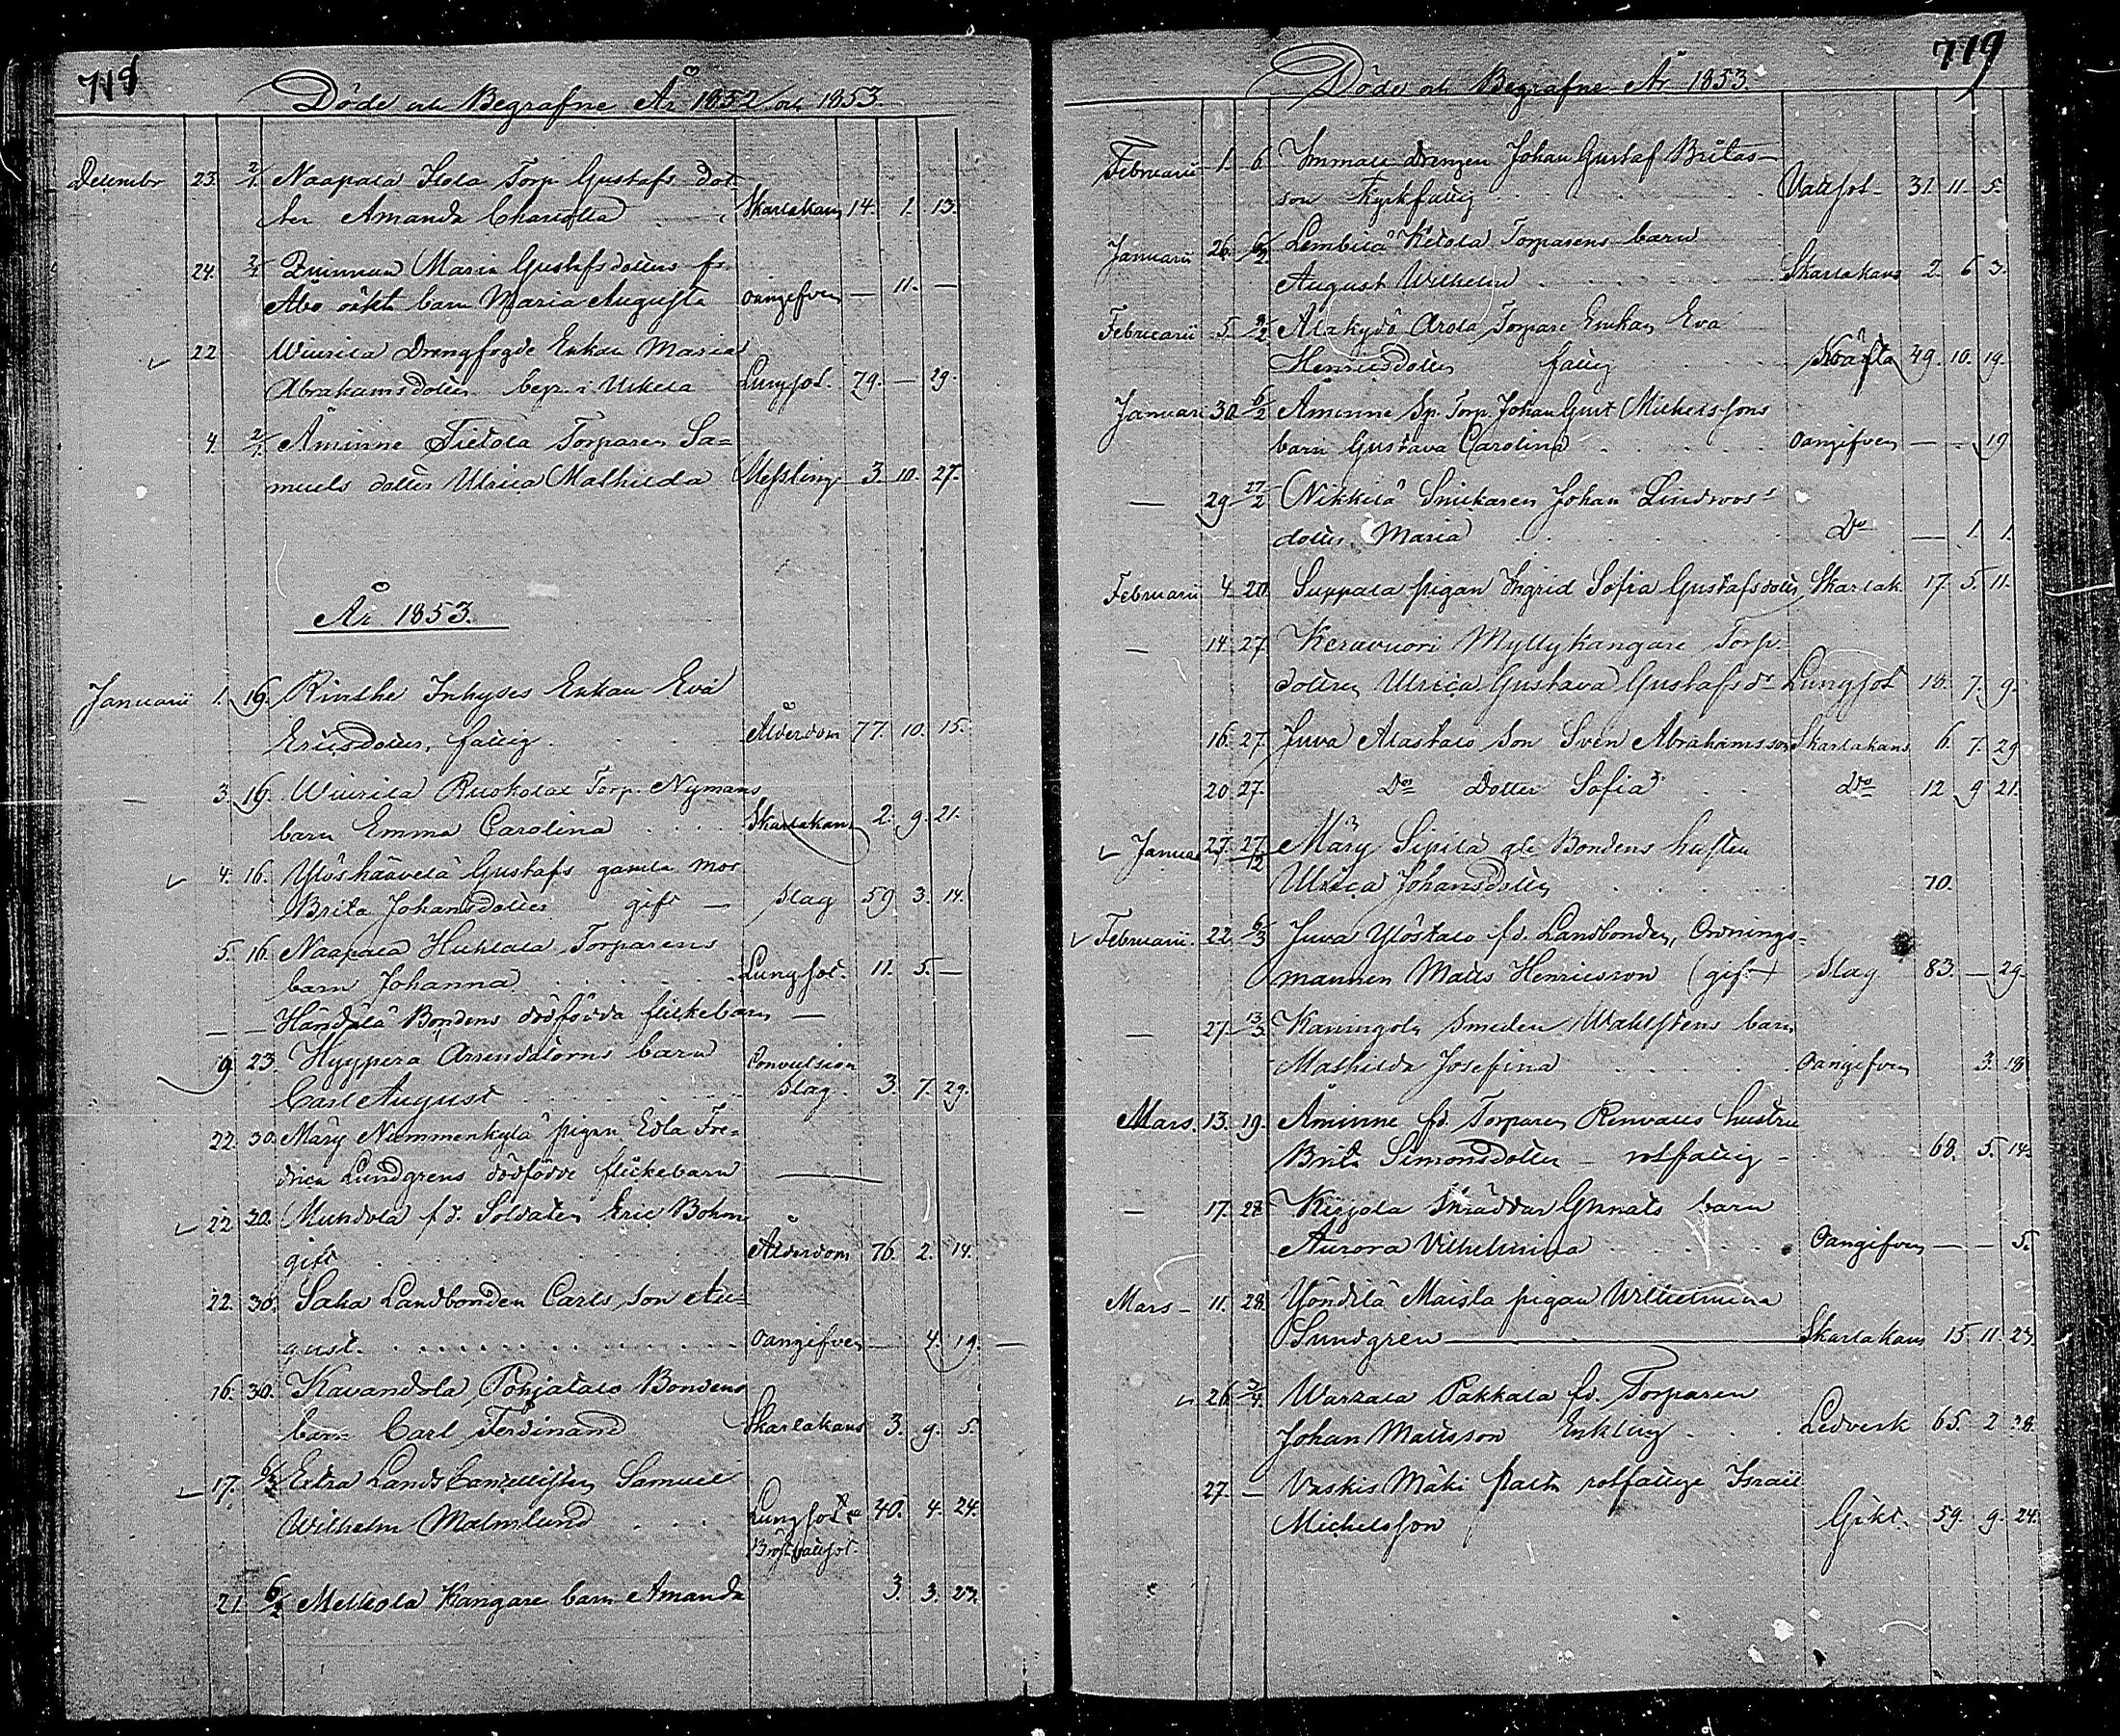 718
Döde och Begrafne År 1852 och 1853
Decembr 23. 2/1. Naapala Isola Torp. Gustafs dot-
ter Amanda Charlotta Skarlakan 14. 1. 13.
24. 2/1 Qvinnan Maria Gustafsdotters fr.
Åbo oäkta barn Maria Augusta oangifven — 11. —
22 Wiurila Drengfogde Enkan Maria
Abrahamsdotter begr. i Uskela Lungsot. 79. — 29.
4. 2/1. Åminne Tietola Torparen Sa=
muels dotter Ulrica Mathilda Messling 3. 10. 27.
År 1853.
Januarii 1. 16. Rinthe Inhyses Enkan Eva
Ericsdotter, fattig Ålderdom 77. 10. 15.
— 3. 16. Wiurila Ruokolax Torp. Nymans
barn Emma Carolina Skarlakan 2. 9. 21.
4. 16. Ylöshäävelä Gustafs gamla mor
Brita Johansdotter gift — slag 59 3. 14.
5. 16. Naapala Huhtala Torparens
barn Johanna Lungsot. 11. 5. —
— — Händälä Bondens dödfödda flickebarn —
9 23. Hyypperä Arrendatorns barn Convulsion
Carl August slag. 3. 7. 29.
22. 30. Märy Nummenkylä pigan Edla Fre=
drica Lundgrens dödfödde flickebarn —
22 30. Mundola f.d. Soldaten Eric Bohm
gift Ålderdom 76. 2. 14.
22. 30. Saha Landbonden Carls son Au=
gust. oangifven — 4. 19. —
16. 30. Kavandola Pohjatalo Bondens
barn Carl Ferdinand Skarlakans 3. 9. 5.
17. 6/2 Extra Lands Cancellisten Samuel
Wilhelm Malmlund Lungsot o 40. 4. 24.
Bröstvattsot.
21. 6/2 Mellola Kangare barn Amanda 3. 3. 23.
719
Döde och Begrafne År 1853.
Februarii 1. 6. Immala drengen Johan Gustaf Britas-
son Kyrkfattig Vattsot- 31. 11. 5.
Januarii 26. 6/2 Lembilä Ketola Torparens barn
August Wilhelm Skarlakans 2. 6 3.
Februarii 5. 9/2 Alakydö Arola Torpare Enkan Eva
Henricsdotter fattig Kräfta 49. 10. 19.
Januari 30. 6/2 Åminne Sp. Torp. Johan Gust Michelssons
barn Gustava Carolina oangifven — — 19
— 29. 27/2 Nikkilä Snickaren Johan Lindroos's
dotter Maria Do — 1. 1.
Februarii 4. 20. Suppala pigan Ingrid Sofia Gustafsdotter Skarlak. 17. 5. 11.
— 14. 27. Keravuori Myllykangare Torp.
dottren Ulrica Gustava Gustafsdr Lungsot 18. 7. 9.
16. 27. Juva Alastalo Son Sven Abrahamsson Skarlakans 6. 7. 29
20. 27. Do Dotter Sofia do 12 9 21.
Januar 27. 27/12 Märy Sipilä gle Bondens hustru
Ulrica Johansdotter 70.
Februarii. 22. 6/3 Juva Ylöstalo f.d. Landbonden, Ordnings=
mannen Matts Henricsson (gift) slag 83. — 29.
— 27. 13/3. Kaningola Smeden Wahlstens barn
Mathilda Josefina Oangifven 3. 18
Mars. 13. 19. Åminne fd. Torparen Renvalls hustru
Brita Simonsdotter — rotfattig — 68. 5. 14.
— 17. 28 Kirjola Skräddar Grnnats barn
Aurora Vilhelmina Oangifven — — 5.
Mars — 11. 28. Yöndilä Maisla pigan Wilhelmina
Sundgren — Skarlakans 15 11. 23.
26. 3/4. Warzala Pakkala fd. Torparen
Johan Mattsson Enkling Ledverk 65. 2 28.
27. — Vaskis Mäki karln rotfattige Israël
Michelsson Gikt. 59. 9. 24.